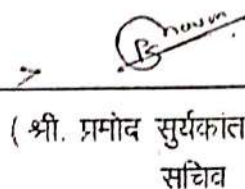 ( श्री. प्रमोद सुर्यकांत
सचिव